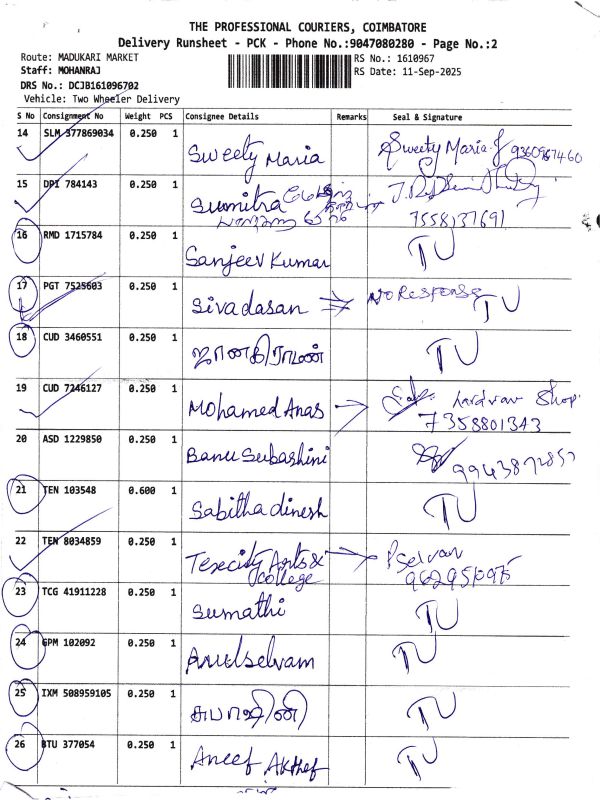 THE PROFESSIONAL COURIERS, COIMBATORE
Delivery Runsheet - PCK - Phone No.:9047080280 - Page No.:2
Route: MADUKARI MARKET
RS No.: 1610967
Staff: MOHANRAJ
RS Date: 11-Sep-2025
DRS No.: DCJB161096702
Vehicle: Two Wheeler Delivery
S No Consignment No Weight PCS Consignee Details Remarks Seal & Signature
14 SLM 377869034 0.250 1 Sweety Maria Sweety Maria
15 DPI 784143 0.250 1 Sumitra
7558137691
16 RMD 1715784 0.250 1 Sanjeev Kumar TU
17 PGT 7525603 0.250 1 Sivadasan No Response TU
18 CUD 3460551 0.250 1 ஜானகிராமன் TU
19 CUD 7246127 0.250 1 Mohamed Anas Shop
7358801343
20 ASD 1229850 0.250 1 Banu Subashini
21 TEN 103548 0.600 1 Sabitha dinesh TU
22 TEN 8034859 0.250 1 Texcity Arts & P Selvan
College
23 TCG 41911228 0.250 1 Sumathi TU
24 GPM 102092 0.250 1 Arulselvam TU
25 IXM 508959105 0.250 1 சுபாஷினி TU
26 BTU 377054 0.250 1 Aneef Akthef TU